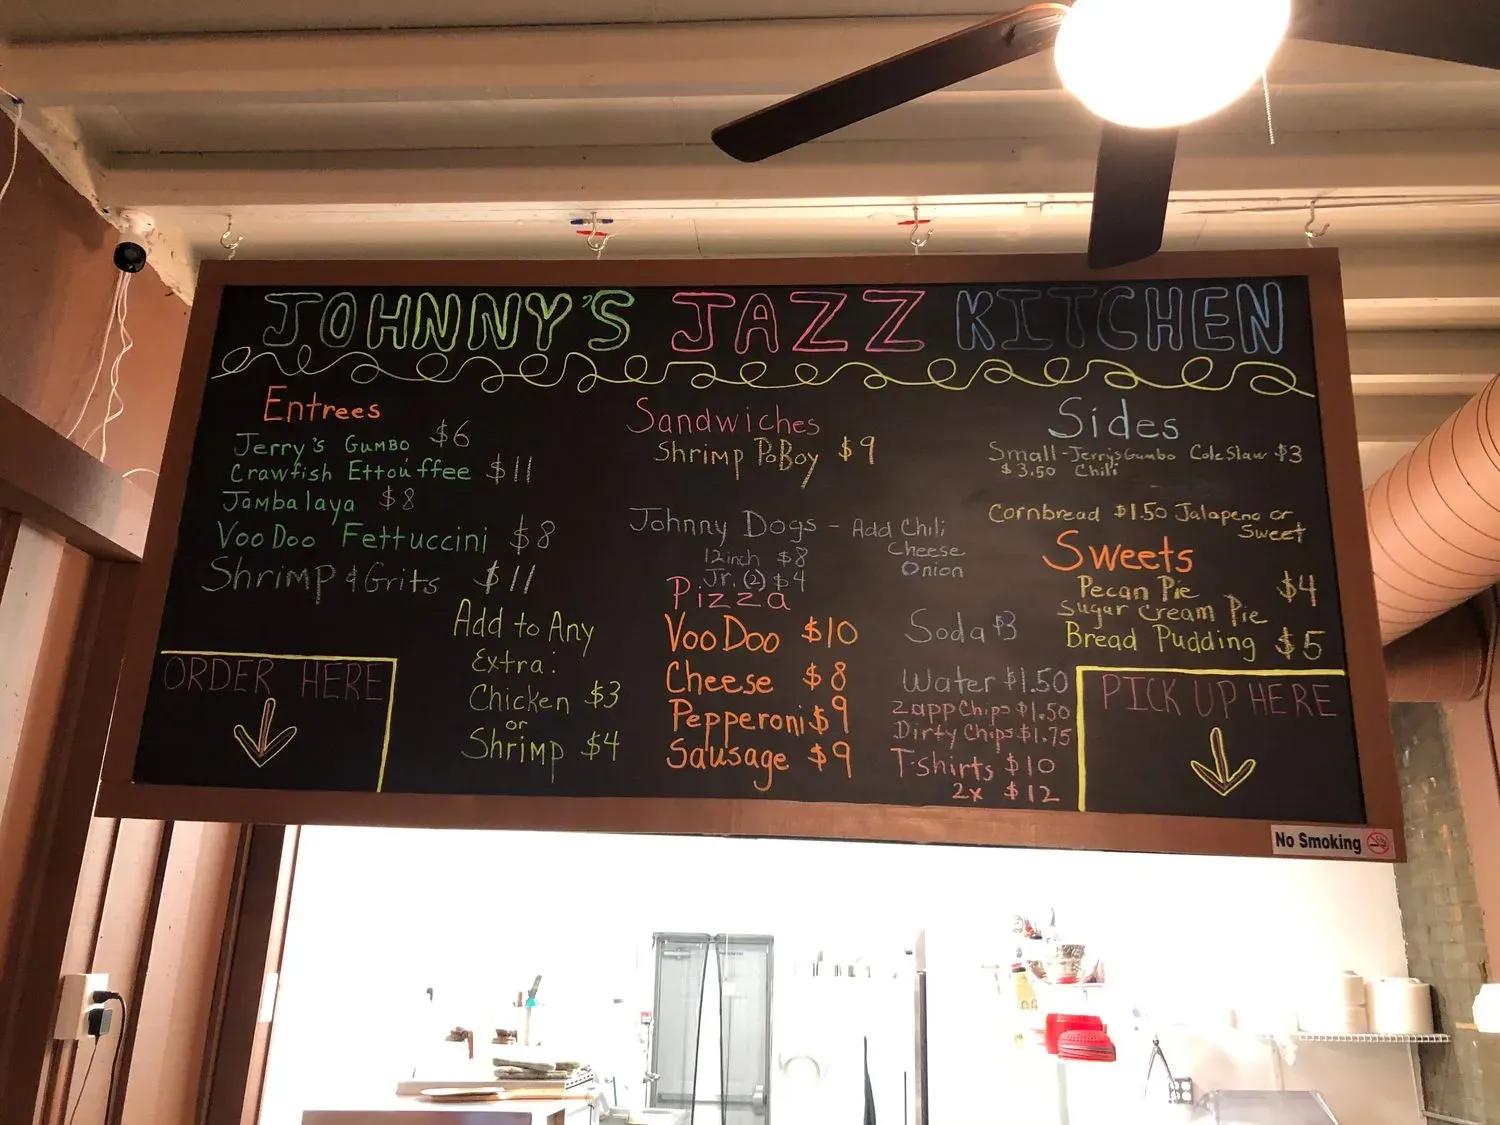 JOHNNY'S JAZZ KITCHEN
Entrees
Jerry's Gumbo $6
Crawfish Ettouffee $11
Jambalaya $8
VooDoo Fettuccini $8
Shrimp & Grits $11
Add to Any
Extra:
Chicken $3
or
Shrimp $4
ORDER HERE
Sandwiches
Shrimp PoBoy $9
Johnny Dogs - Add Chili
Cheese
Onion
12inch $8
Jr. (2) $4
Pizza
VooDoo $10
Cheese $8
Pepperoni $9
Sausage $9
Soda $3
Water $1.50
Zapp Chips $1.50
Dirty Chips $1.75
T-shirts $10
2x $12
Sides
Small - Jerrys Gumbo Cole Slaw $3
$3.50 Chili
Cornbread $1.50 Jalapeno or
Sweet
Sweets
Pecan Pie $4
Sugar Cream Pie
Bread Pudding $5
PICK UP HERE
No Smoking